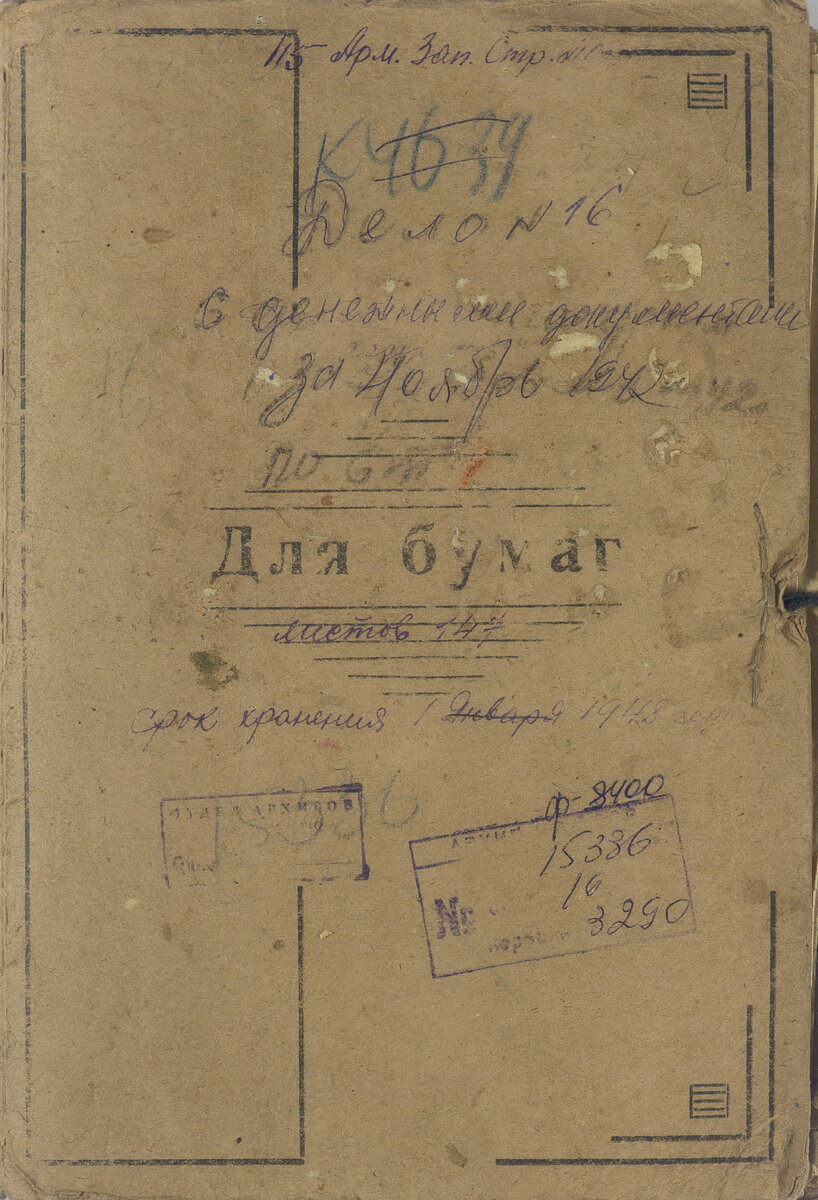 115 Арм. Зап. Стр.
К4634
Дело N 16
С денежными документами
за Ноябрь 1942
по
Для бумаг
листов 147
срок хранения 1 Января 1948
АРХИВОВ
15336
ф-8400
15336
16
№
3290